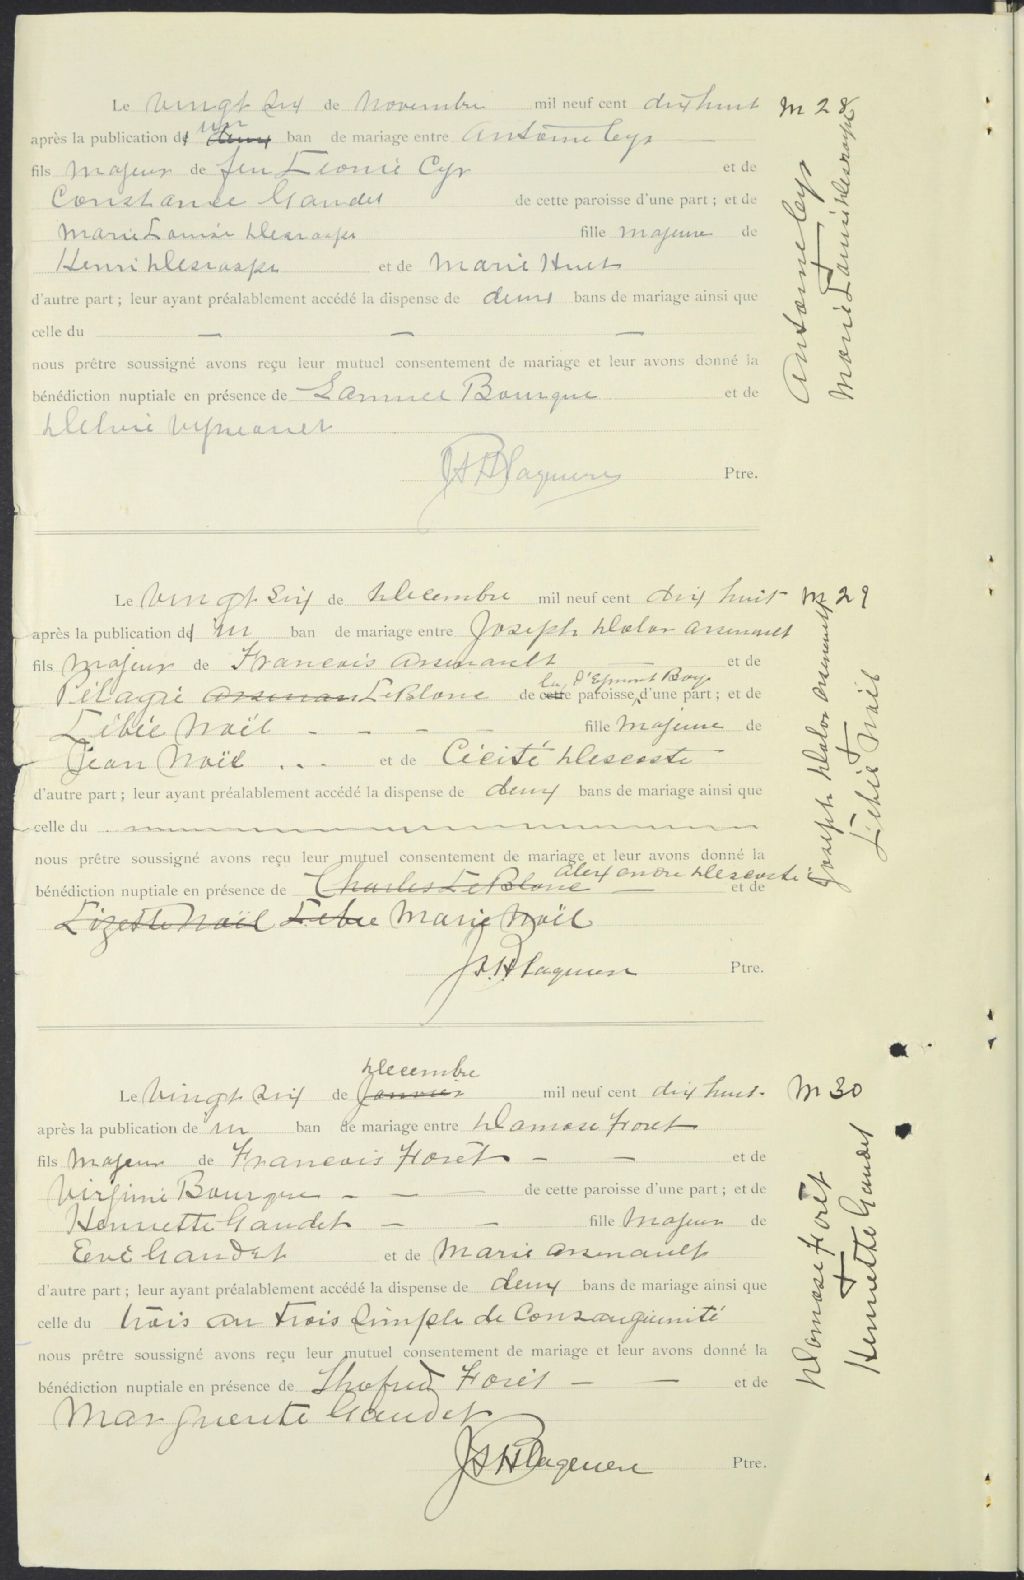 Le vingt six de Novembre mil neuf cent dix huit M 28
après la publication de un deux ban de mariage entre Antoine Cyr
fils majeur de feu Leonie Cyr et de
Constance Gaudet de cette paroisse d'une part ; et de
Marie Louise Desroches fille majeure de
Henri Desroches et de Marie Huet
d'autre part ; leur ayant préalablement accédé la dispense de deux bans de mariage ainsi que
celle du — — —
nous prêtre soussigné avons reçu leur mutuel consentement de mariage et leur avons donné la
bénédiction nuptiale en présence de Samuel Bourque et de
Delvine Vigneau
JSH Blaquiere Ptre.
Antoine Cyr
Marie Louise Desroches
Le vingt six de Decembre mil neuf cent dix huit M 29
après la publication de un ban de mariage entre Joseph Dolor Arsenault
fils majeur de Francois Arsenault — et de
la d'Egmont Bay
Pélagie Arsenau LeBlanc de cette paroisse d'une part ; et de
Lébée Noël - - - - fille Majeure de
Jean Noël . . . et de Cécité Descoste
d'autre part ; leur ayant préalablement accédé la dispense de deux bans de mariage ainsi que
celle du
nous prêtre soussigné avons reçu leur mutuel consentement de mariage et leur avons donné la
Alexandre Descoste
bénédiction nuptiale en présence de Charles LeBlanc — et de
Lizette Noël Lebee Marie Noël
JSH Blaquiere Ptre.
Joseph Dolor Arsenault
Lebée Noël
Decembre
Le vingt six de Janvier mil neuf cent dix huit. M 30
après la publication de un ban de mariage entre Damase Foret
fils majeur de Francois Forêt - — et de
Virginie Bourque - — — de cette paroisse d'une part ; et de
Henriette Gaudet — - fille Majeur de
Gaudet et de Marie Arsenault
d'autre part ; leur ayant préalablement accédé la dispense de deux bans de mariage ainsi que
celle du trois au trois simple de Consanguinité
nous prêtre soussigné avons reçu leur mutuel consentement de mariage et leur avons donné la
bénédiction nuptiale en présence de Forêt — — et de
Marguerite Gaudet
JSH Blaquiere Ptre.
Damase Forêt
Henriette Gaudet